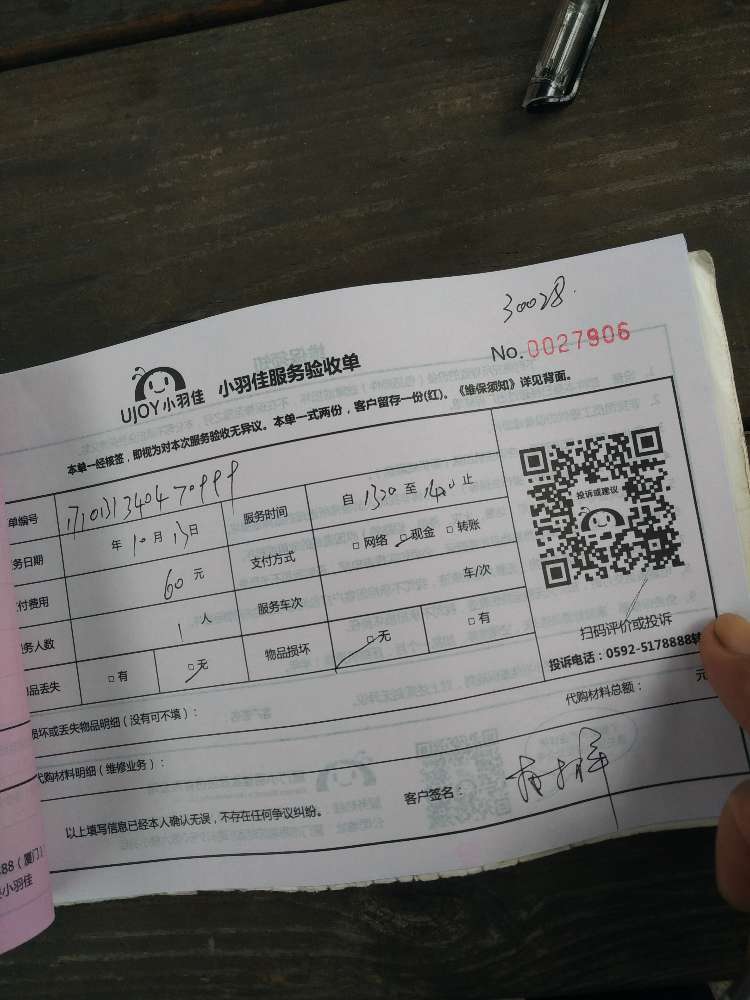 30028.
No.0027906
UJOY小羽佳 小羽佳服务验收单
本单一经核签，即视为对本次服务验收无异议。本单一式两份，客户留存一份(红)。《维保须知》详见背面。
单编号 服务时间 自 1320 至 1420 止
务日期 年 10 月 13 日 支付方式 □网络 □现金 □转账
付费用 60 元 服务车次 车/次
务人数 1 人 物品损坏 □无 □有
品丢失 □有 □无
投诉或建议
扫码评价或投诉
投诉电话：0592-5178888转
损坏或丢失物品明细（没有可不填）：
代购材料明细（维修业务）： 代购材料总额： 元
以上填写信息已经本人确认无误，不存在任何争议纠纷。 客户签名：
88（厦门）
小羽佳